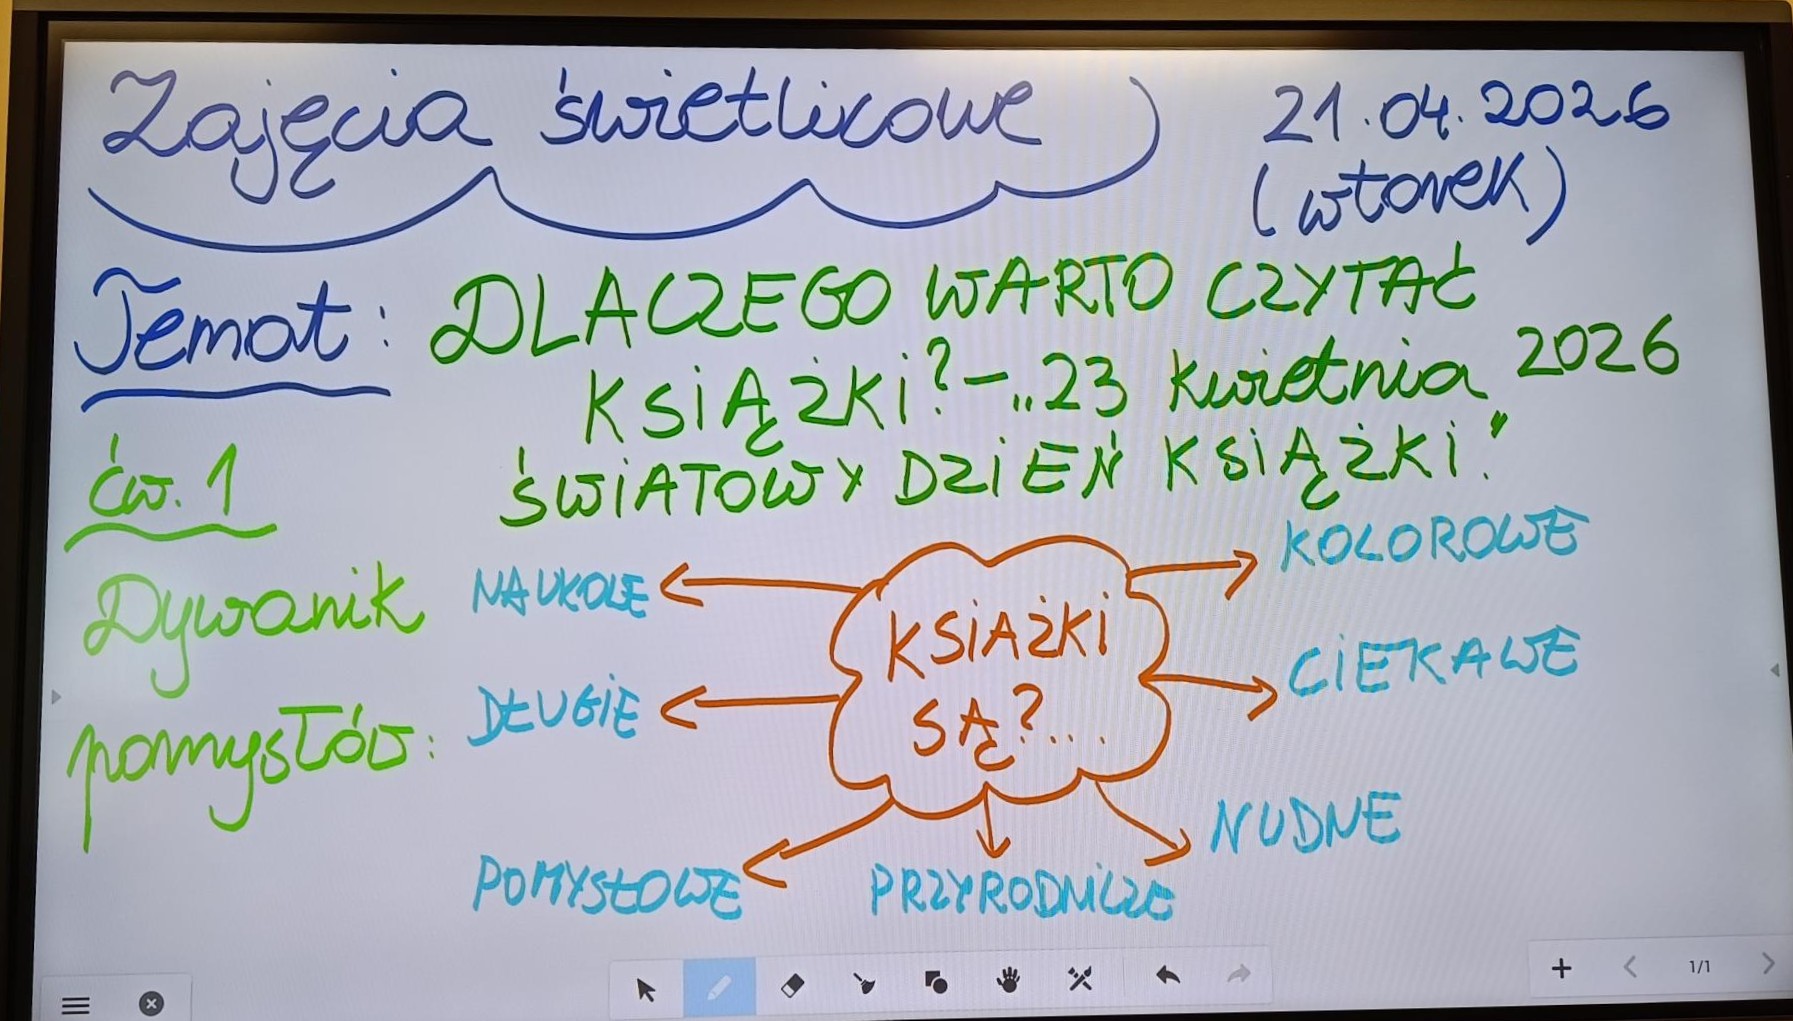 Zajęcia świetlicowe
21.04.2026
(wtorek)
Temat: DLACZEGO WARTO CZYTAĆ
KSIĄŻKI? - "23 kwietnia 2026
ŚWIATOWY DZIEŃ KSIĄŻKI."
ćw. 1
Dywanik
pomysłów:
KSIAŻKI
SĄ?...
NAUKOWE
KOLOROWE
DŁUGIE
CIEKAWE
POMYSŁOWE
PRZYRODNICZE
NUDNE
1/1